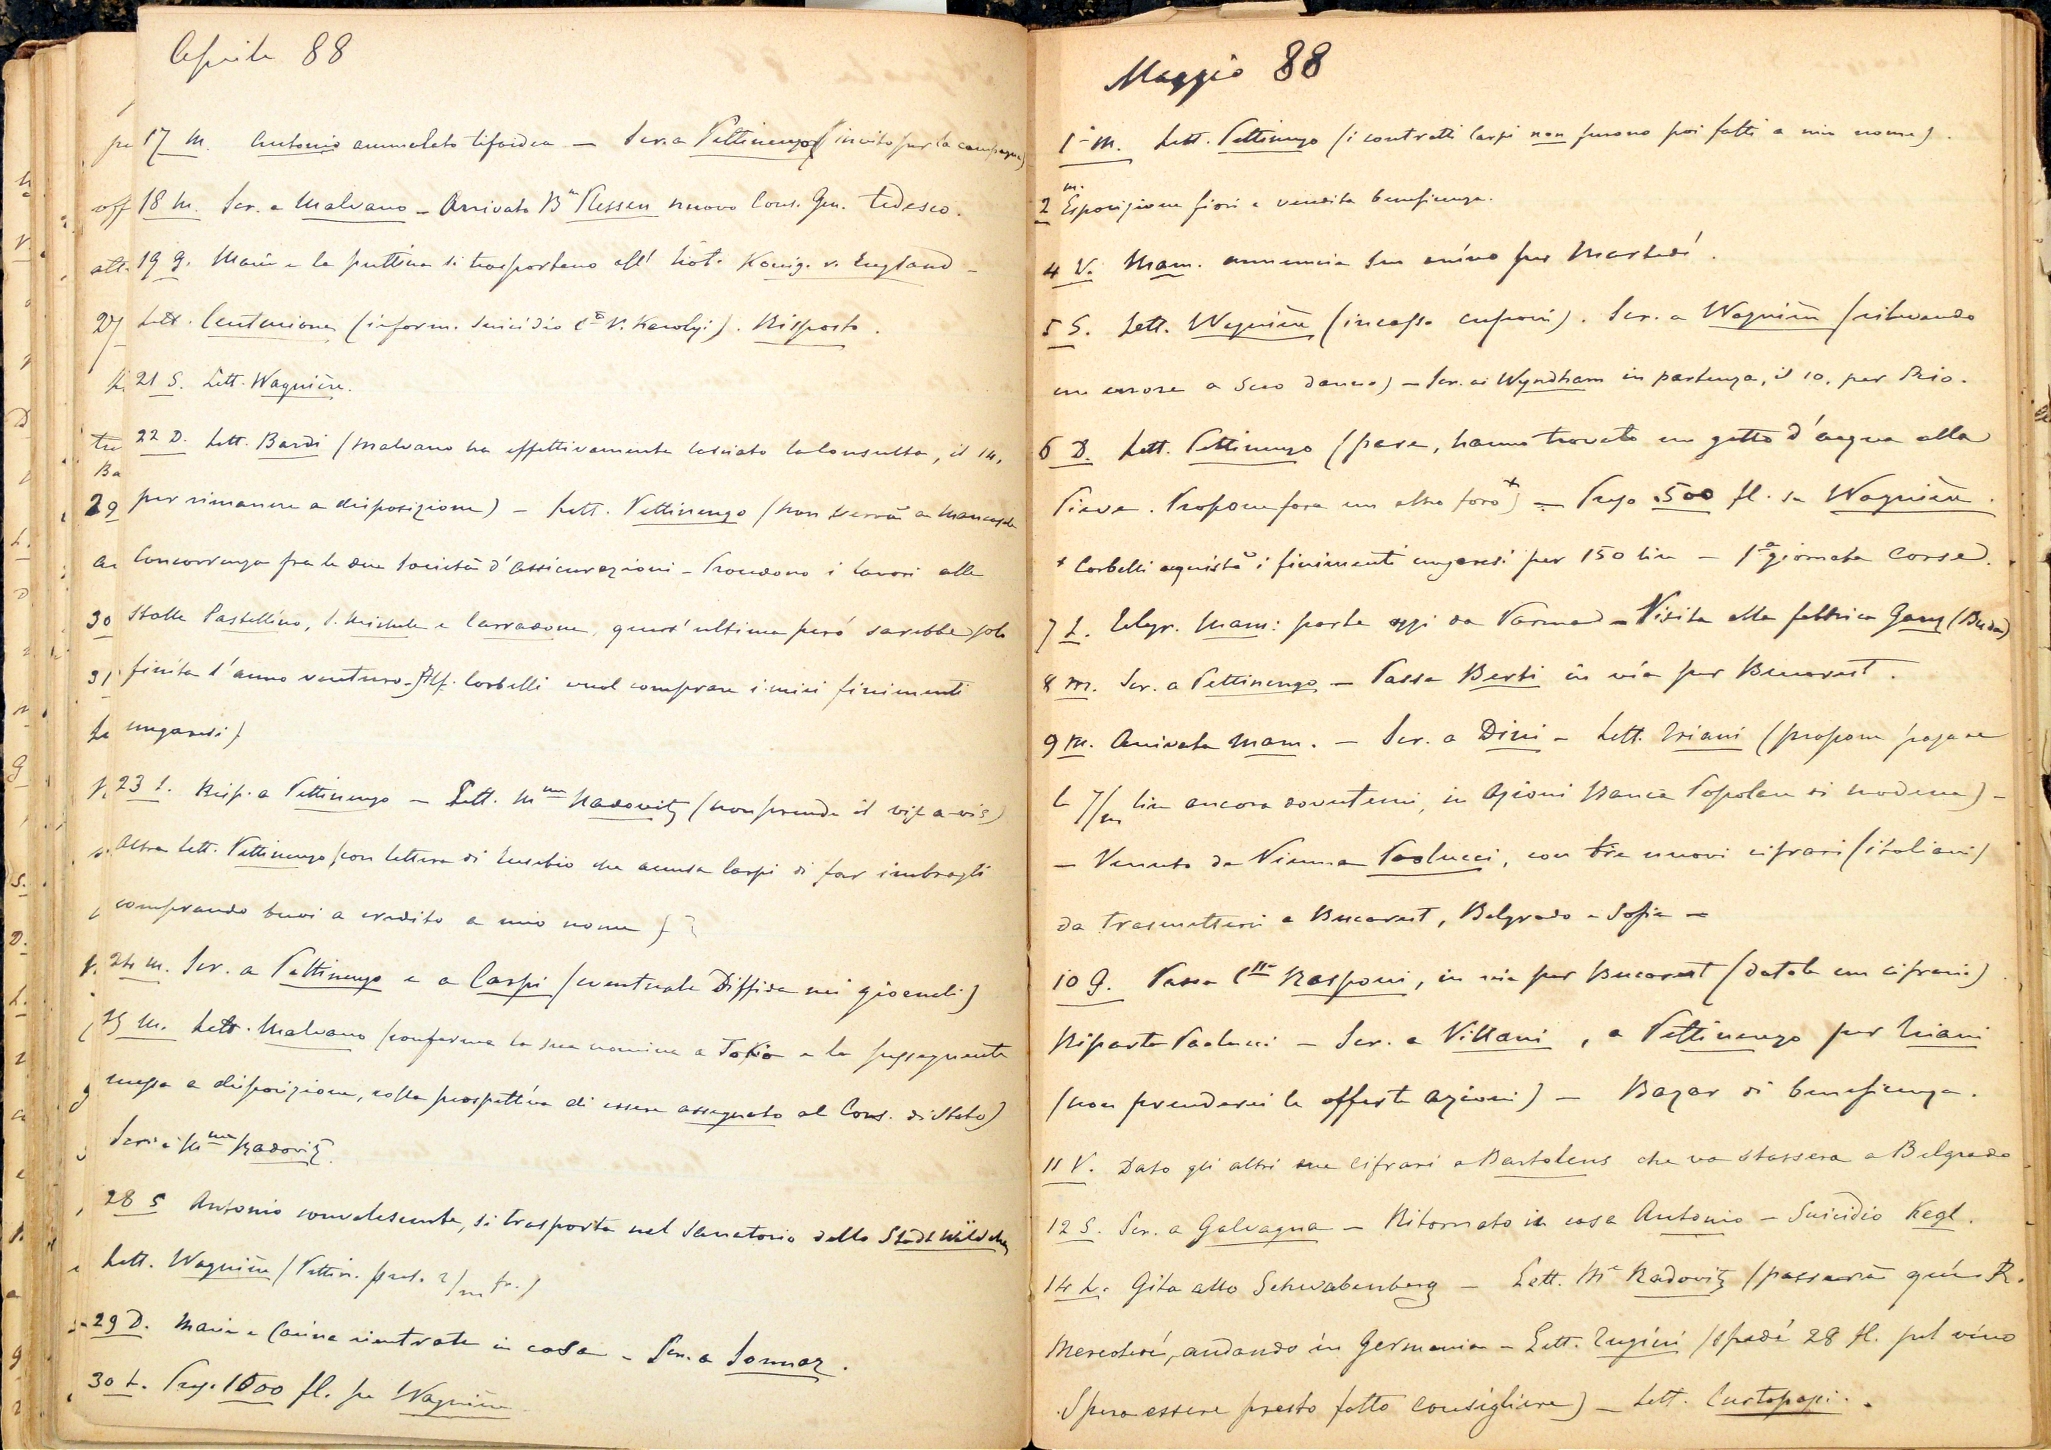 Aprile 88
17 M. Antonio ammalato tifoidea — Scr. a Pettinengo (invito per la campagna)
18 M. Scr. a Malvano — Arrivato Bⁿ Plessen nuovo Cons. Gen. tedesco.
19 G. Maria e la puttina si trasportano all' hôt. König. v. England —
Lett. Centurione (inform. suicidio Cᵗᵉ V. Karolyi). Risposto.
21 S. Lett. Wagnière.
22 D. Lett. Bardi (Malvano ha effettivamente lasciato la Consulta, il 14,
per rimanere a disposizione) — Lett. Pettinengo (non verrà a
Concorrenza fra le due Società d'Assicurazioni — Procedono i lavori alle
stalle Pastellino, S. Michele e Carradone, quest' ultima però sarebbe solo
finita l'anno venturo. Alf. Corbelli vuol comprare i miei finimenti
ungaresi)
23 L. Risp. a Pettinengo — Lett. Mᵐᵉ Radovitz (non prende il vis-a-vis)
Altra lett. Pettinengo (con lettera di Eusebio che accusa Carpi di far imbrogli
comprando buoi a credito a mio nome)
24 M. Scr. a Pettinengo e a Carpi (eventuale Diffida nei giornali)
25 M. Lett. Malvano (conferma la sua nomina a Tokio e la susseguente
messa a disposizione, colla prospettiva di essere assegnato al Cons. di Stato)
Scr. a Mᵐᵉ Radovitz.
28 S Antonio convalescente, si trasporta nel sanatorio dello Stadtwäldchen
Lett. Wagnière (Pettin. prel. 2/m fr.)
29 D. Maria e Carina rientrate in casa — Scr. a Sonnaz.
30 L. Prego 1500 fl. su Wagnière.
Maggio 88
1 M. Lett. Pettinengo (i contratti Carpi non furono poi fatti a mio nome).
2 m. Esposizione fiori e vendita beneficenza.
4 V. Mam. annuncia suo arrivo per Martedì.
5 S. Lett. Wagnière (incasso cuponi). Scr. a Wagnière (rilevando
un errore a suo danno) — Scr. a Wyndham in partenza, il 10, per Rio.
6 D. Lett. Pettinengo (pare, hanno trovato un getto d'acqua alla
Pieve. Propone fare un altro foro*) — Prego 500 fl. su Wagnière.
* Corbelli acquistò i finimenti ungaresi per 150 lire — 1ª giornata Corse.
7 L. Telegr. Mam: parte oggi da Parma — Visita alla fabbrica Ganz (Buda)
8 M. Scr. a Pettinengo — Passa Berti in via per Bucarest.
9 M. Arrivata Mam. — Scr. a Dini — Lett. Triani (propone pagare
le 7/m lire ancora dovutemi, in Azioni Banca Popolare di Modena) —
— Venuto da Vienna Paolucci, con tre nuovi cifrari (italiani)
da trasmettersi a Bucarest, Belgrado e Sofia —
10 G. Passa Cᵗᵉ Rasponi, in via per Bucarest (datole un cifrario)
Riparte Paolucci — Scr. a Villani, a Pettinengo per Triani
(non prenderei le offerte azioni) — Bazar di beneficenza.
11 V. Dato gli altri due cifrari a Bartolens che va stassera a Belgrado
12 S. Scr. a Galvagna — Ritornato in casa Antonio — Suicidio Kegl.
14 L. Gita allo Schwabenberg — Lett. Mᵉ Radovitz (passerà qui R.
Mercoledì, andando in Germania — Lett. Eugini (spedì 28 fl. pel vino
Spera essere presto fatto Consigliere) — Lett. Curtopassi.